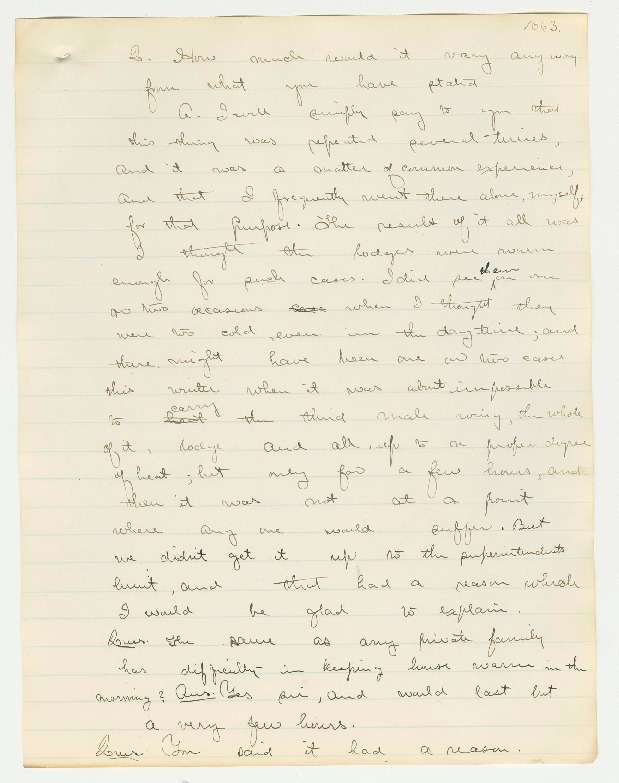 1063.
Q. How much would it vary any way
from what you have stated
A. I will simply say to you that
this thing was repeated several times,
and it was a matter of common experience,
and that I frequently went there alone, myself,
for that purpose. The result of it all was
I thought the lodges were warm
enough for such cases. I did see them on one
or two occasions case when I thought they
were too cold, even in the daytime; and
there might have been one or two cases
this winter when it was about impossible
to heat carry the third male wing, the whole
of it, lodge and all, up to a proper degree
of heat; but only for a few hours, and
then it was not at a point
where any one would suffer. But
we didn't get it up to the superintendents
limit, and that had a reason which
I would be glad to explain.
Ques. The same as any private family
has difficulty in keeping house warm in the
morning? Ans. Yes sir, and would last but
a very few hours.
Ques. You said it had a reason.